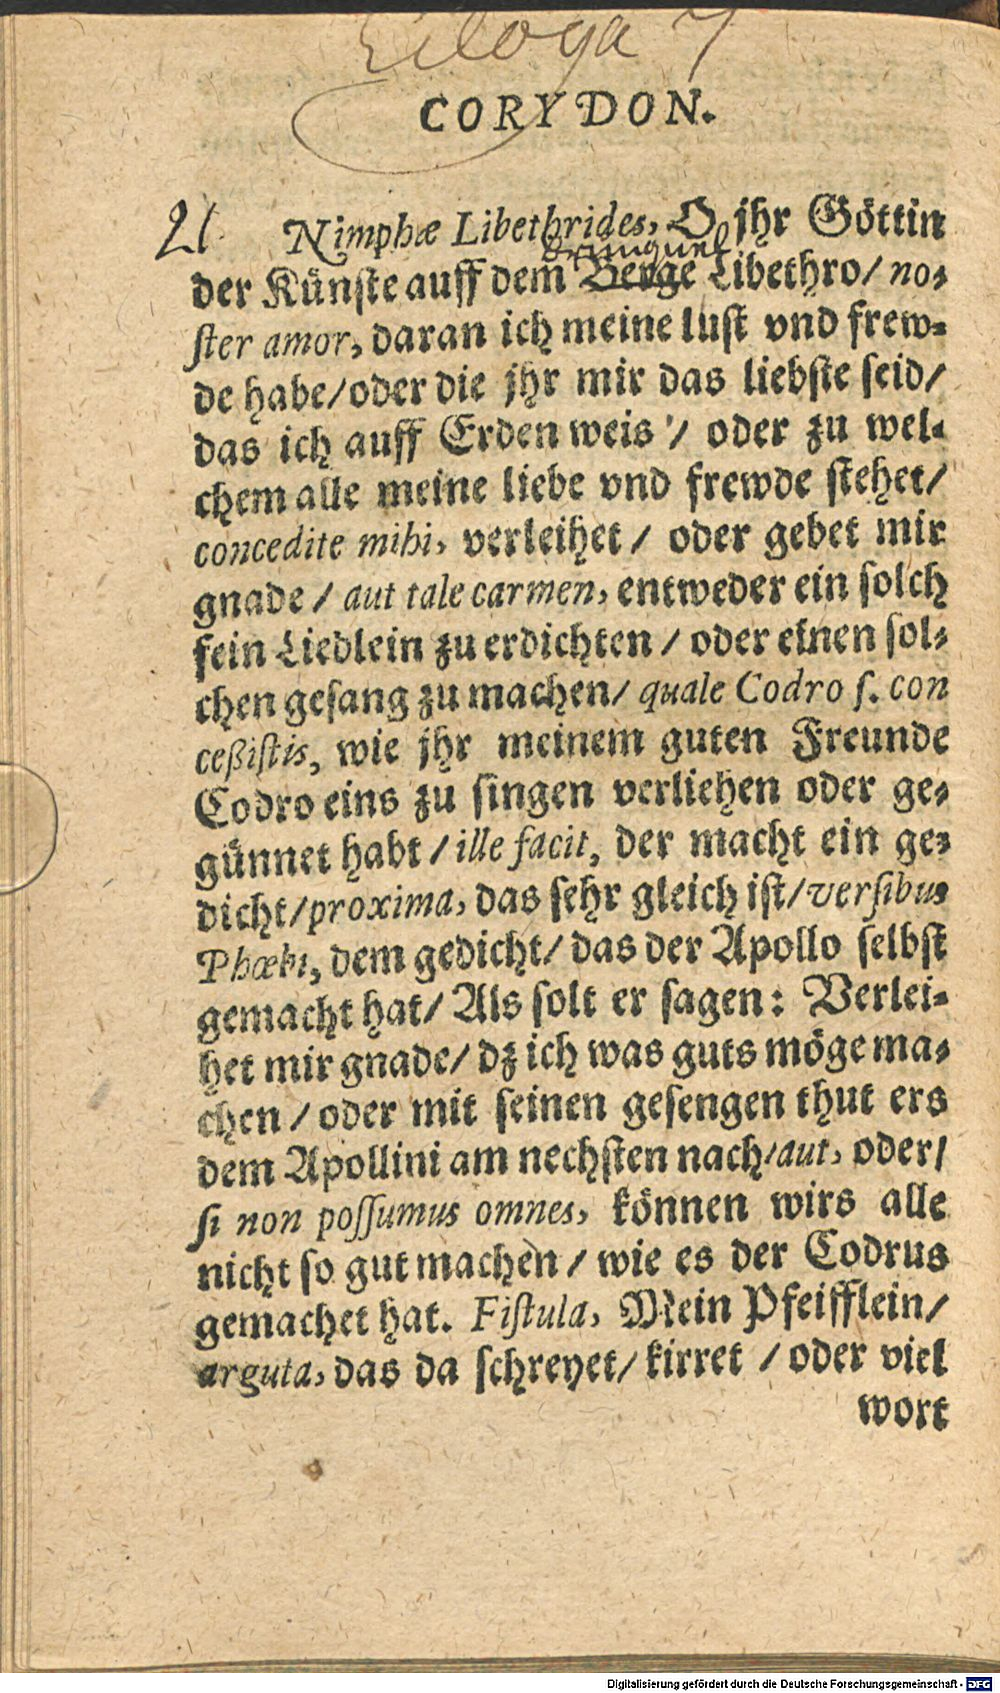 Ecloga 7
CORYDON.
21. Nimphæ Libethrides, O jhr Göttin
der Künste auff dem Berge Libethro/ no-
ſter amor, daran ich meine lust vnd frew-
de habe/oder die jhr mir das liebste seid/
das ich auff Erden weis / oder zu wel-
chem alle meine liebe vnd frewde stehet/
concedite mihi, verleihet / oder gebet mir
gnade / aut tale carmen, entweder ein solch
fein Liedlein zu erdichten / oder einen sol-
chen gesang zu machen/ quale Codro ſ. con
ceßiſtis, wie jhr meinem guten Freunde
Codro eins zu singen verliehen oder ge-
günnet habt / ille facit, der macht ein ge-
dicht/proxima, das sehr gleich ist/verſibus
Phœbi, dem gedicht/ das der Apollo selbst
gemacht hat/ Als solt er sagen: Verlei-
het mir gnade/ dz ich was guts möge ma-
chen / oder mit seinen gesengen thut ers
dem Apollini am nechsten nach/aut, oder/
ſi non poſſumus omnes, können wirs alle
nicht so gut machen / wie es der Codrus
gemachet hat. Fiſtula, Mein Pfeifflein/
arguta, das da schreyet/ kirret / oder viel
wort
Digitalisierung gefördert durch die Deutsche Forschungsgemeinschaft - DFG